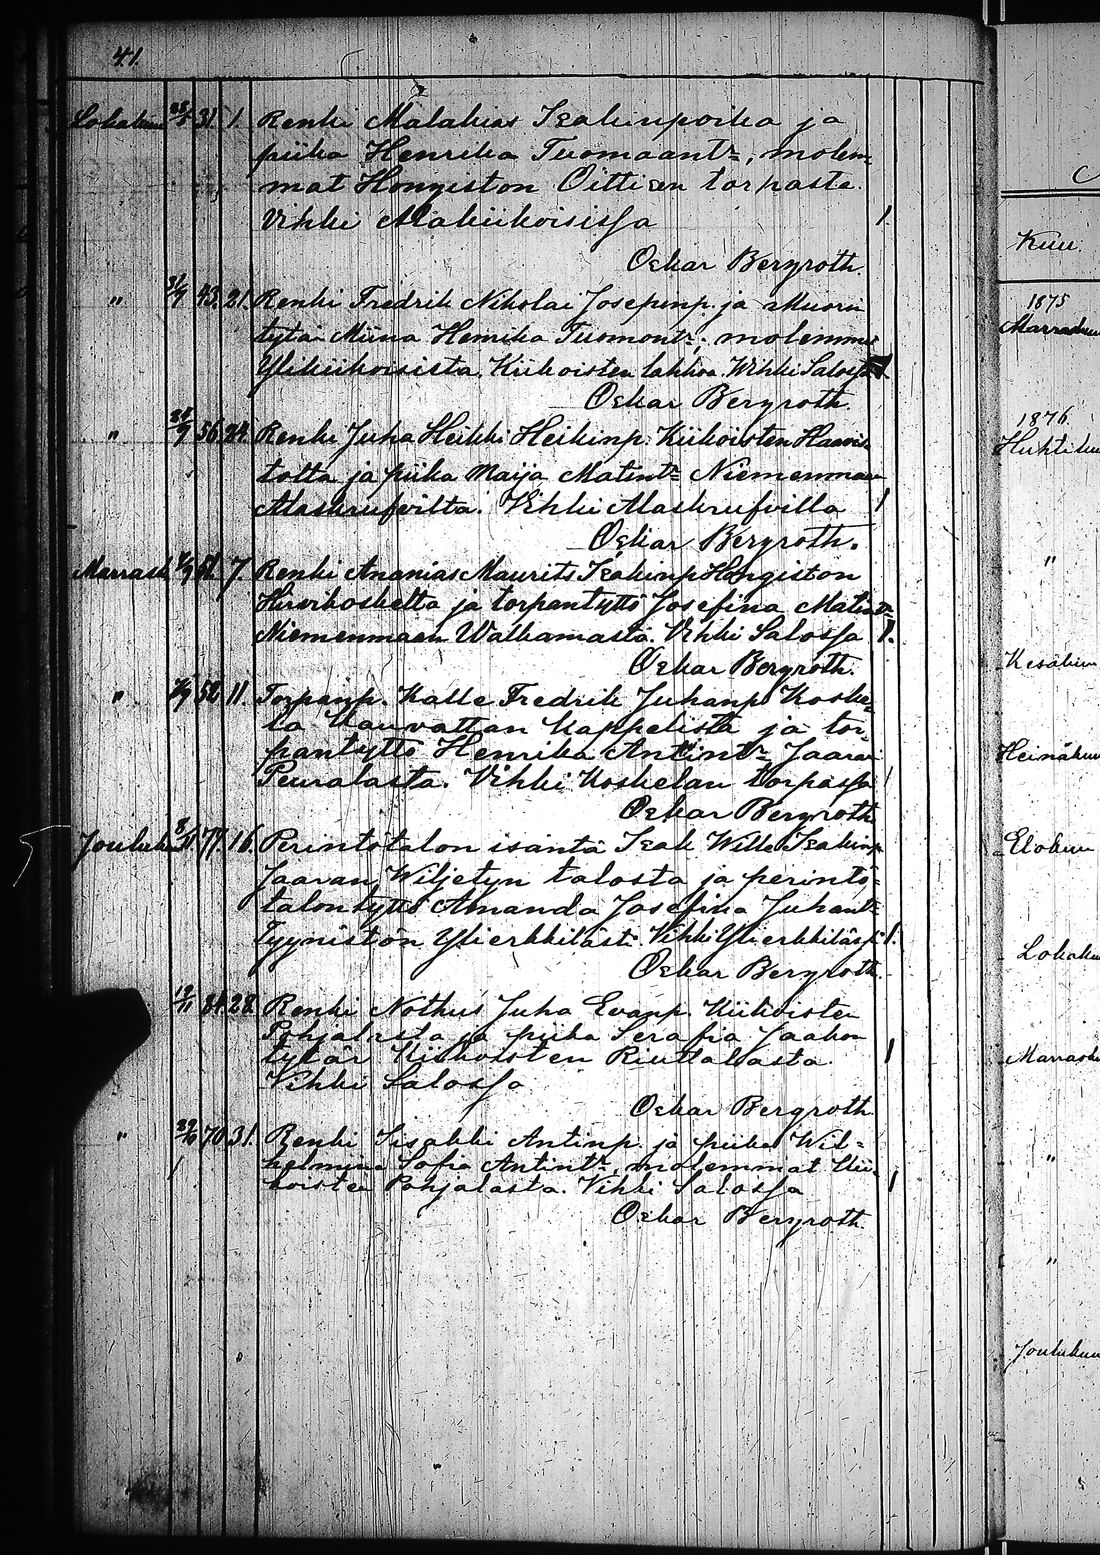 41.
Lokakuu 31. 1. Renki Malakias Isakinpoika ja
piika Henrika Tuomaantr, molem-
mat Hongiston Oittisen torpasta.
Vihki Alakiikoisissa 1.
Oskar Bergroth.
" 43. 21. Renki Fredrik Nikolai Josepinp. ja Muori
tytär Miina Henrika Tuomontr, molemmat
Ylikiikoisista. Kiikoisten lahkoa. Wihki Salossa 1.
Oskar Bergroth.
" 56. 24. Renki Juha Heikki Heikinp. Kiikoisten Haavis
tolta ja piika Maija Matintr Niemenmaan
Alaskrufvilta. Vihki Alaskrufvilla 1
Oskar Bergroth.
Marrask. 51. 7. Renki Ananias Maurits Isakinp Hongiston
Hirvikoskelta ja torpantyttö Josefina Matintr
Niemenmaan Walkamasta. Vihki Salossa 1.
Oskar Bergroth.
" 52 11. Torpanp. Kalle Fredrik Juhanp. Koske-
la Kauvattan Kappelista ja tor-
pantyttö Henrika Antintr Jaaran
Peuralasta. Vihki Koskelan torpassa 1
Oskar Bergroth
Jouluk. 77. 16. Perintötalon isäntä Isak Wille Isakinp
Jaaran Wiljetyn talosta ja perintö-
talontyttö Amanda Josefina Juhantr
Tyynistön Ylierkkiläst. Vihki Ylierkkilässä 1.
Oskar Bergroth.
12/11 84. 28. Renki Nothus Juha Evanp. Kiikoisten
Pohjalasta ja piika Serafia Jaakon
tytär Kiikoisten Ruuttalasta. 1
Vihki Salossa
Oskar Bergroth
" 29/10 70 31. Renki Iisakki Antinp. ja piika Wil-
helmina Sofia Antintr, molemmat Kii-
koisten Pohjalasta. Vihki Salossa 1
Oskar Bergroth
Kuu.
1875
Marraskuu
1876.
Huhtikuu
"
Kesäkuu
Heinäkuu
Elokuu
Lokakuu
Marrasku
"
"
Joulukuu